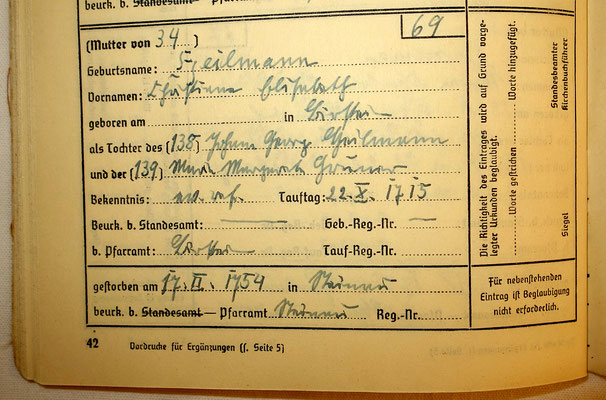 beurk. b. Standesamt — Pfarramt
69
(Mutter von 34)
Geburtsname: Heilmann
Vornamen: Christiane Elisabeth
geboren am — in Birstein
als Tochter des (138) Johann Georg Heilmann
und der (139) Maria Margaret
Bekenntnis: ev. ref. Tauftag: 22. X. 1715
Beurk. b. Standesamt: — Geb.-Reg.-Nr. —
b. Pfarramt: Birstein Tauf-Reg.-Nr.
gestorben am 17. II. 1754 in Steinau
beurk. b. Standesamt — Pfarramt Steinau Reg.-Nr.
Die Richtigkeit des Eintrages wird auf Grund vorge-
legter Urkunden beglaubigt.
Worte gestrichen Worte hinzugefügt.
Siegel Standesbeamter
Kirchenbuchführer
Für nebenstehenden
Eintrag ist Beglaubigung
nicht erforderlich.
42 Vordrucke für Ergänzungen (s. Seite 5)